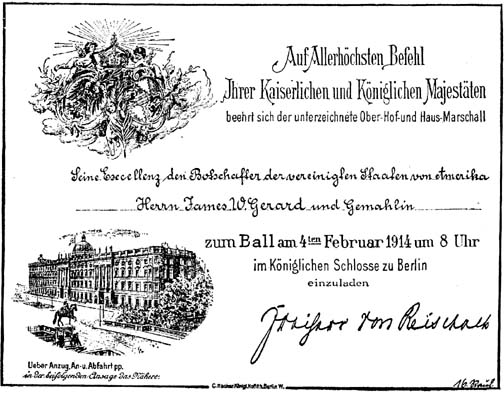 Auf Allerhöchsten Befehl
Ihrer Kaiserlichen und Königlichen Majestäten
beehrt sich der unterzeichnete Ober-Hof-und Haus-Marschall
Seine Excellenz den Botschafter der vereinigten Staaten von Amerika
Herrn James W. Gerard und Gemahlin
zum Ball am 4ten Februar 1914 um 8 Uhr
im Königlichen Schlosse zu Berlin
einzuladen
von Reischach
Ueber Anzug, An-u. Abfahrt pp.
in der beifolgenden Ansage das Nähere.